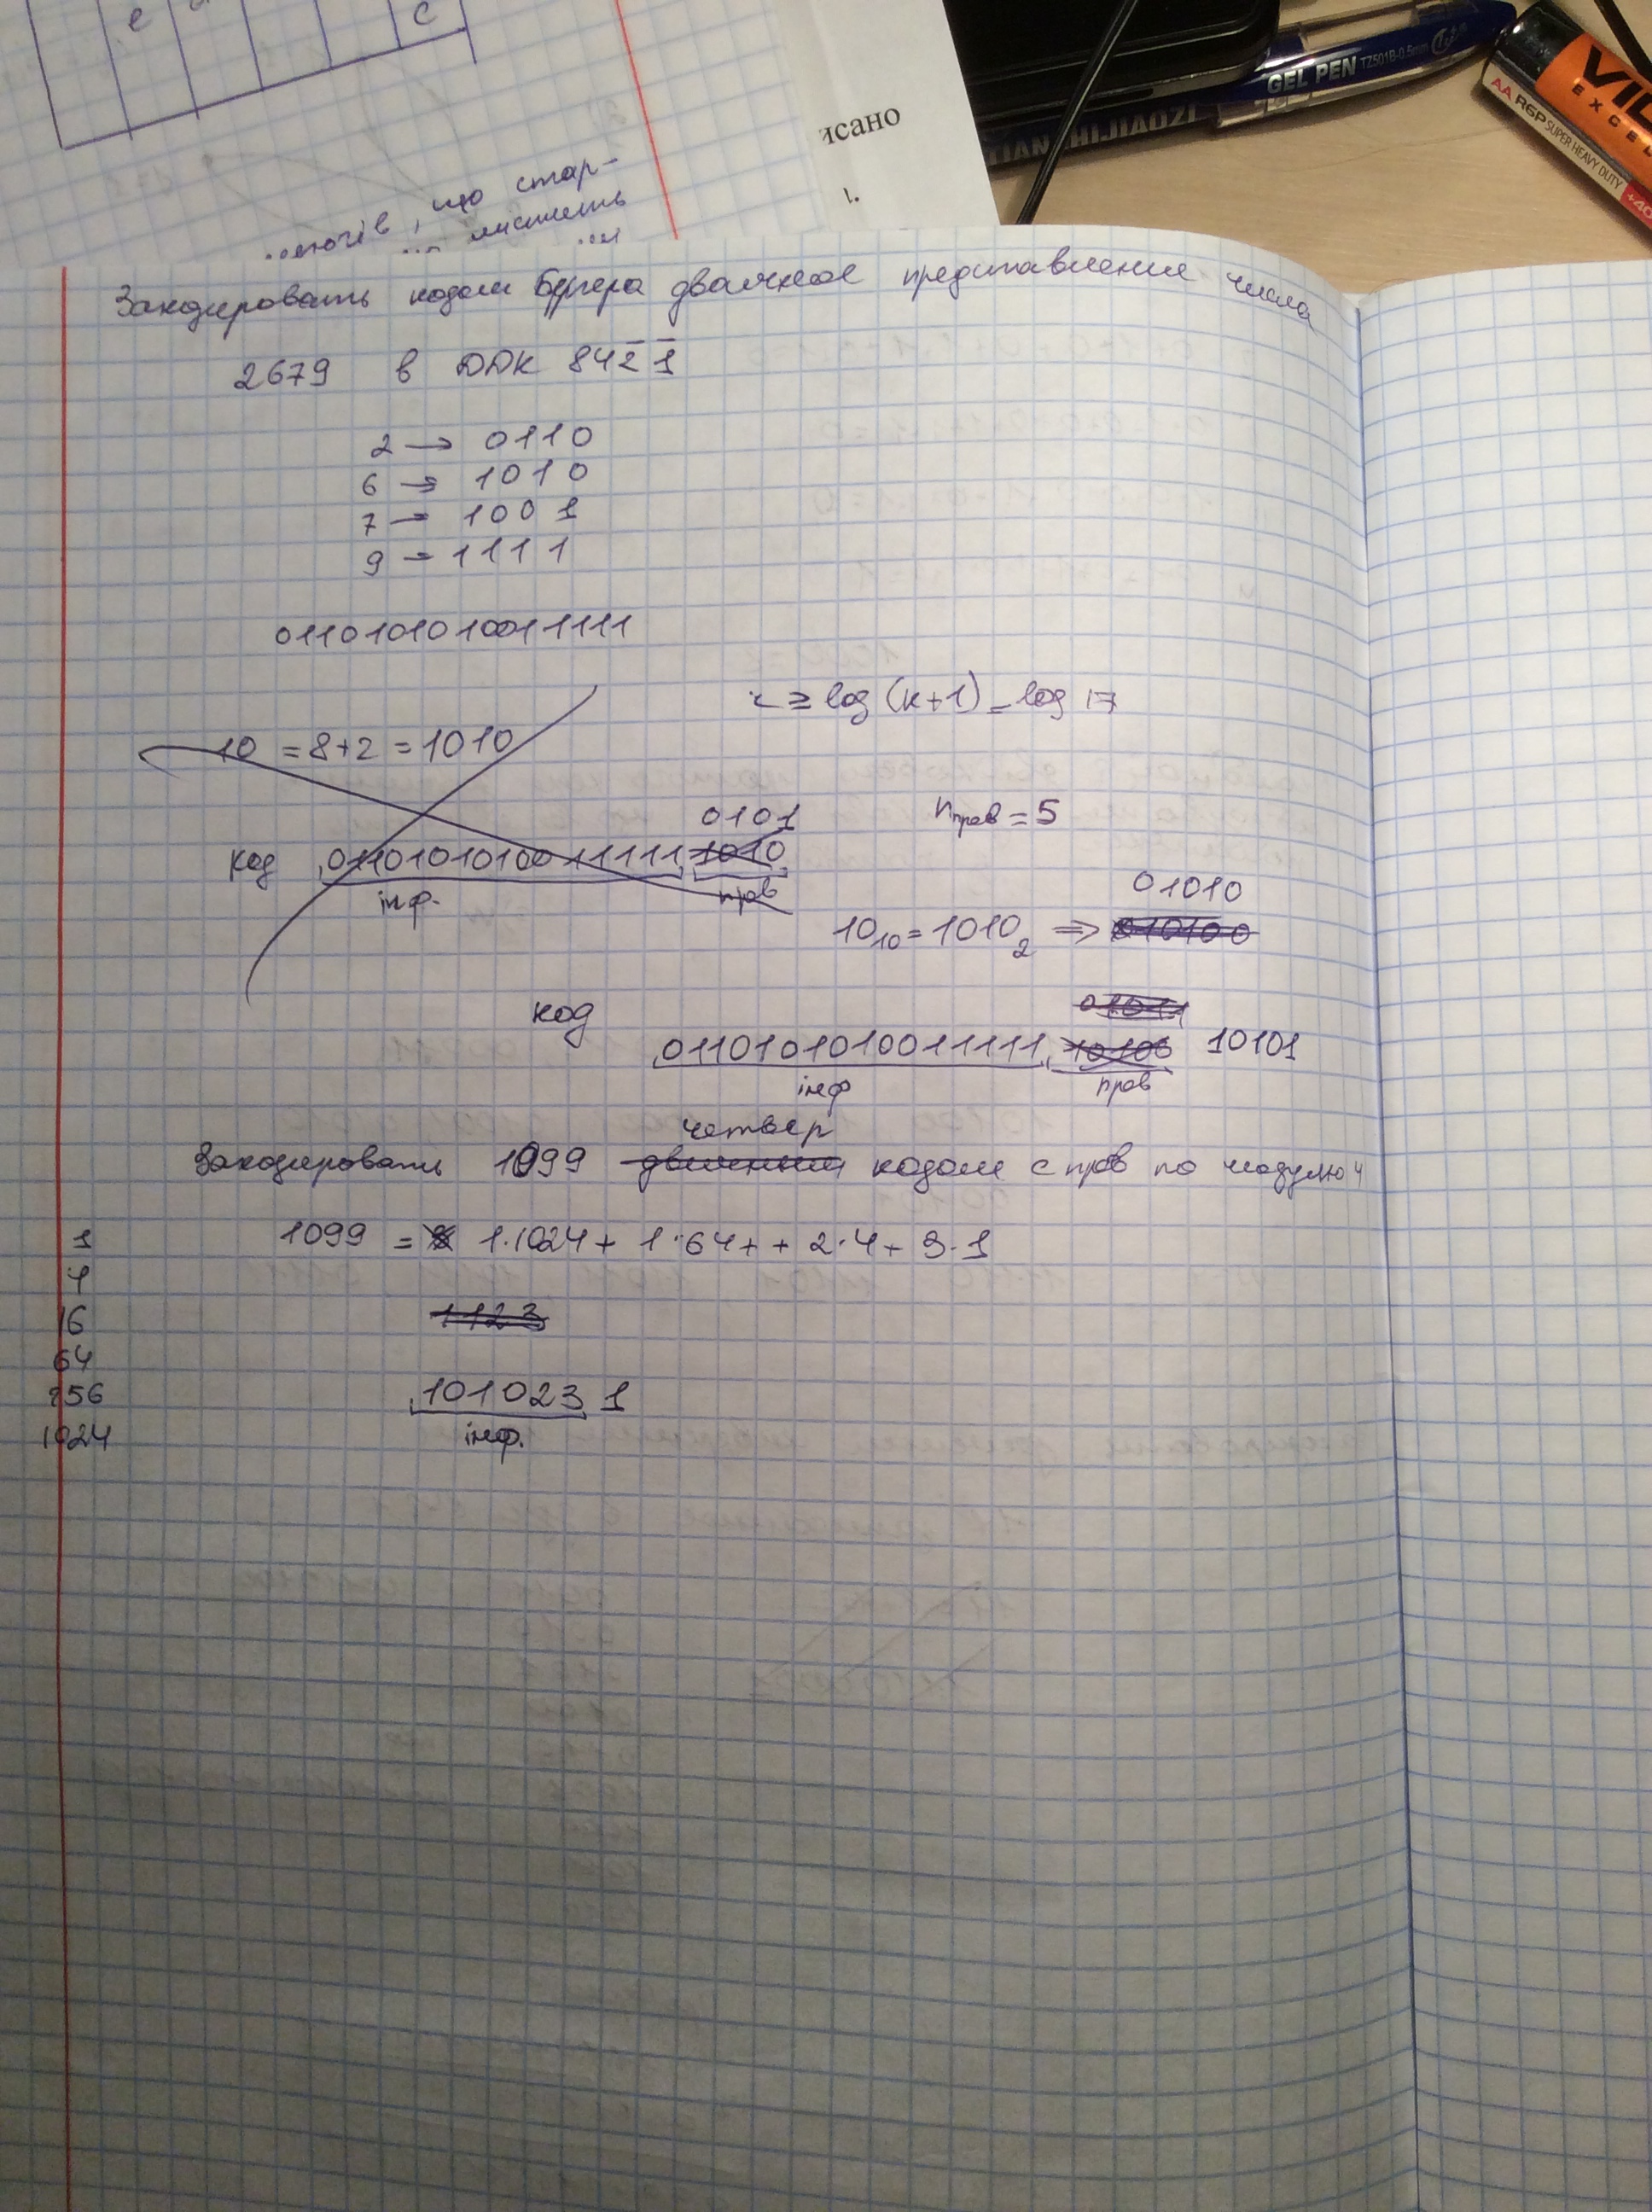 e
c
исано
GEL PEN TZ501B-0.5mm
TIANSHIJIAOZI
AA R6P SUPER HEAVY DUTY
+40
, що стар-
Закодировать кодом Бергера двоичное представление числа
2679 в ДДК 842̅1̅
2 → 0110
6 → 1010
7 → 1001
9 – 1111
0110101010011111
r ≥ log (k+1) = log 17
10 = 8+2 = 1010
n пров = 5
0101
код 0110101010011111 1010
інф. пров
01010
10₁₀ = 1010₂ ⇒ 010100
код
01011
0110101010011111 10100 10101
інф пров
четвер
Закодировать 1099 двоичным кодом с пров по модулю 4
1099 = 1·1024 + 1·64 + + 2·4 + 3·1
1
4
16
64
256
1024
1123
101023 1
інф.